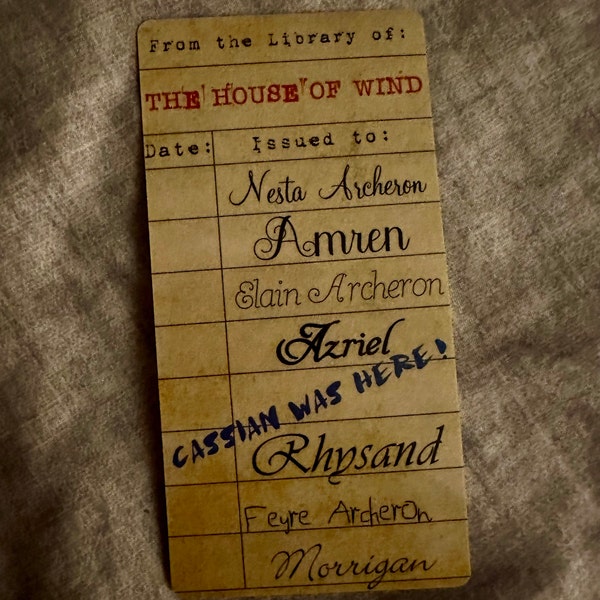 From the Library of:
THE HOUSE OF WIND
Date: Issued to:
Nesta Archeron
Amren
Elain Archeron
Azriel
CASSIAN WAS HERE!
Rhysand
Feyre Archeron
Morrigan